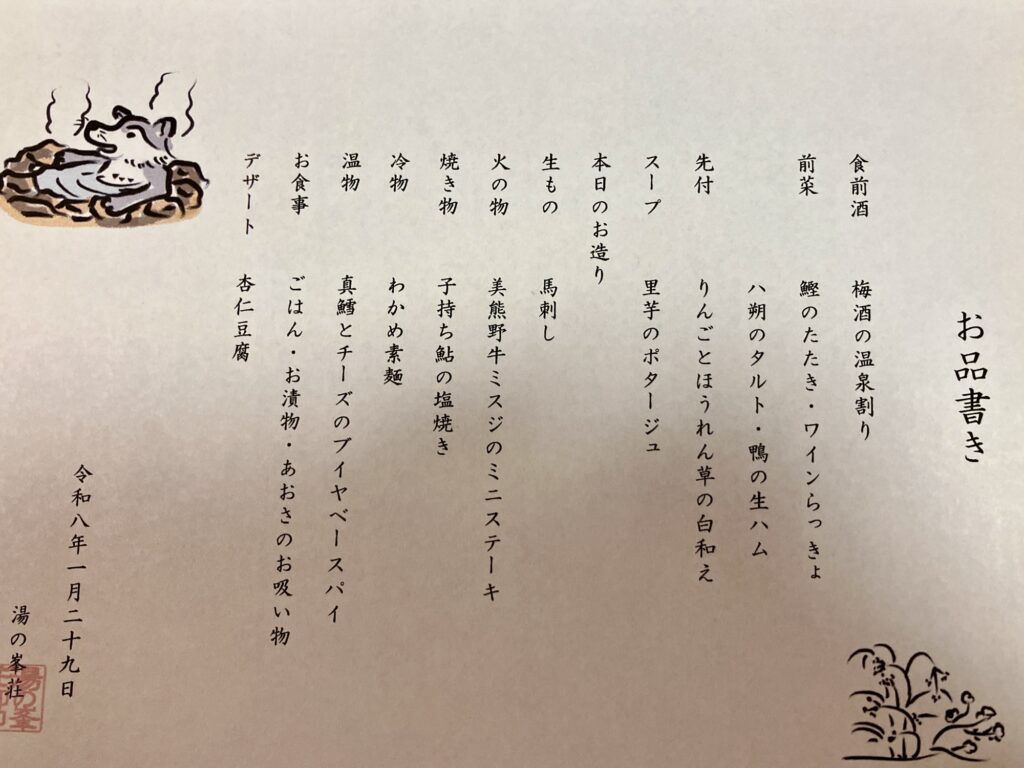 お品書き
食前酒 梅酒の温泉割り
前菜 鰹のたたき・ワインらっきょ
八朔のタルト・鴨の生ハム
先付 りんごとほうれん草の白和え
スープ 里芋のポタージュ
本日のお造り
生もの 馬刺し
火の物 美熊野牛ミスジのミニステーキ
焼き物 子持ち鮎の塩焼き
冷物 わかめ素麺
温物 真鱈とチーズのブイヤベースパイ
お食事 ごはん・お漬物・あおさのお吸い物
デザート 杏仁豆腐
令和八年一月二十九日
湯の峯荘
湯の峯